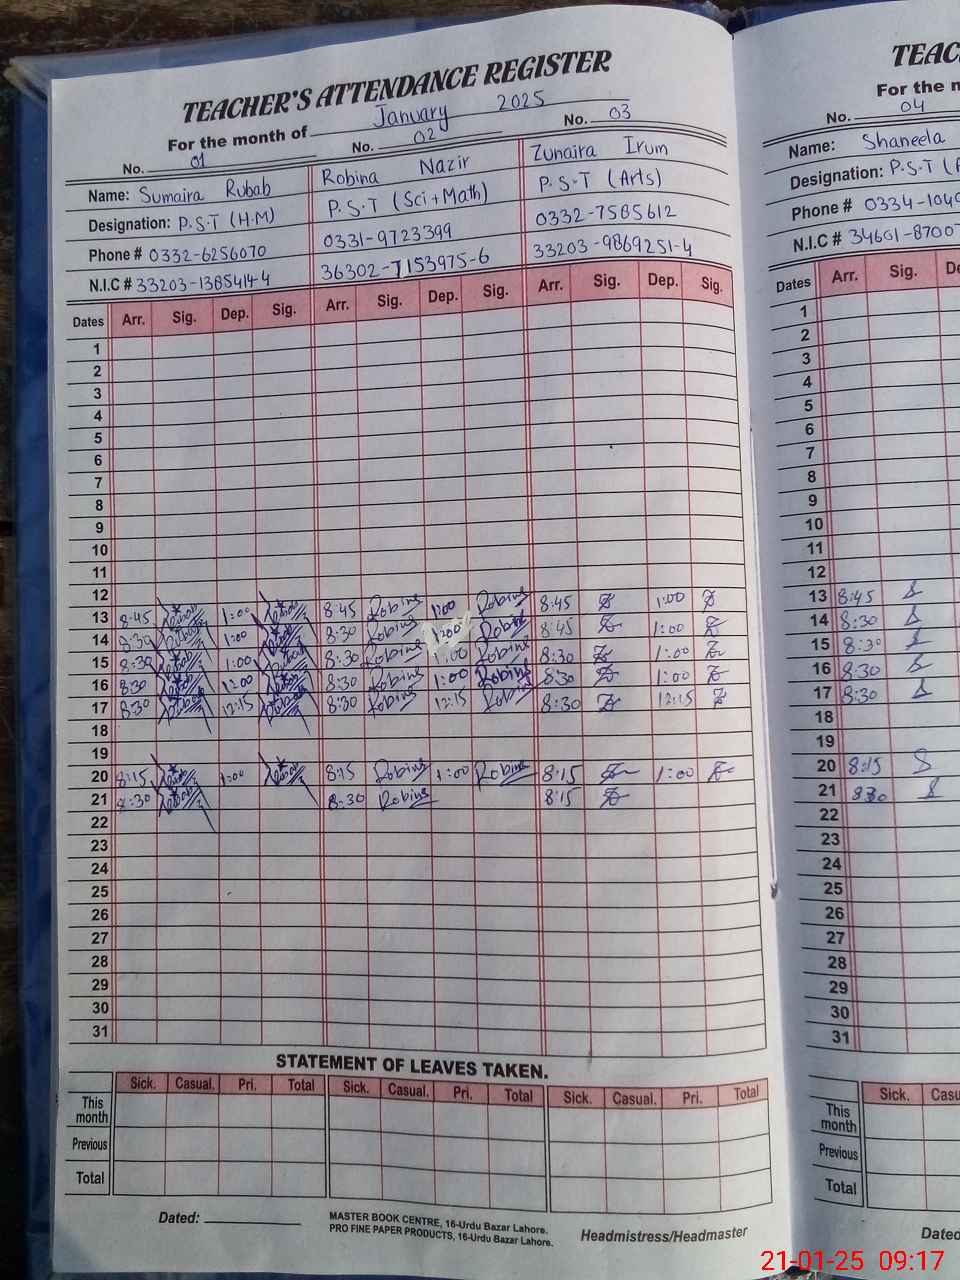 TEACHER'S ATTENDANCE REGISTER
For the month of January 2025
No. 01 No. 02 No. 03
Name: Sumaira Rubab Robina Nazir Zunaira Irum
Designation: P.S.T (H.M) P.S.T (Sci+Math) P.S.T (Arts)
Phone # 0332-6256070 0331-9723399 0332-7585612
N.I.C # 33203-1385414-4 36302-7153975-6 33203-9869251-4
Dates Arr. Sig. Dep. Sig. Arr. Sig. Dep. Sig. Arr. Sig. Dep. Sig.
1
2
3
4
5
6
7
8
9
10
11
12
13 8:45 1:00 8:45 Robina 1:00 Robina 8:45 Z 1:00 Z
14 8:30 1:00 8:30 Robina 1:00 Robina 8:45 Z 1:00 Z
15 8:30 1:00 8:30 Robina 1:00 Robina 8:30 Z 1:00 Z
16 8:30 1:00 8:30 Robina 1:00 Robina 8:30 Z 1:00 Z
17 8:30 12:15 8:30 Robina 12:15 Robina 8:30 Z 12:15 Z
18
19
20 8:15 1:00 8:15 Robina 1:00 Robina 8:15 Z 1:00 Z
21 8:30 8:30 Robina 8:15 Z
22
23
24
25
26
27
28
29
30
31
STATEMENT OF LEAVES TAKEN.
Sick. Casual. Pri. Total Sick. Casual. Pri. Total Sick. Casual. Pri. Total
This month
Previous
Total
Dated:
MASTER BOOK CENTRE, 16-Urdu Bazar Lahore.
PRO FINE PAPER PRODUCTS, 16-Urdu Bazar Lahore.
Headmistress/Headmaster
TEAC
For the m
No. 04
Name: Shaneela
Designation: P.S.T (
Phone # 0334-104
N.I.C # 34601-8700
Dates Arr. Sig. De
1
2
3
4
5
6
7
8
9
10
11
12
13 8:45
14 8:30
15 8:30
16 8:30
17 8:30
18
19
20 8:15
21 8:30
22
23
24
25
26
27
28
29
30
31
Sick. Casu
This month
Previous
Total
Dated
21-01-25 09:17